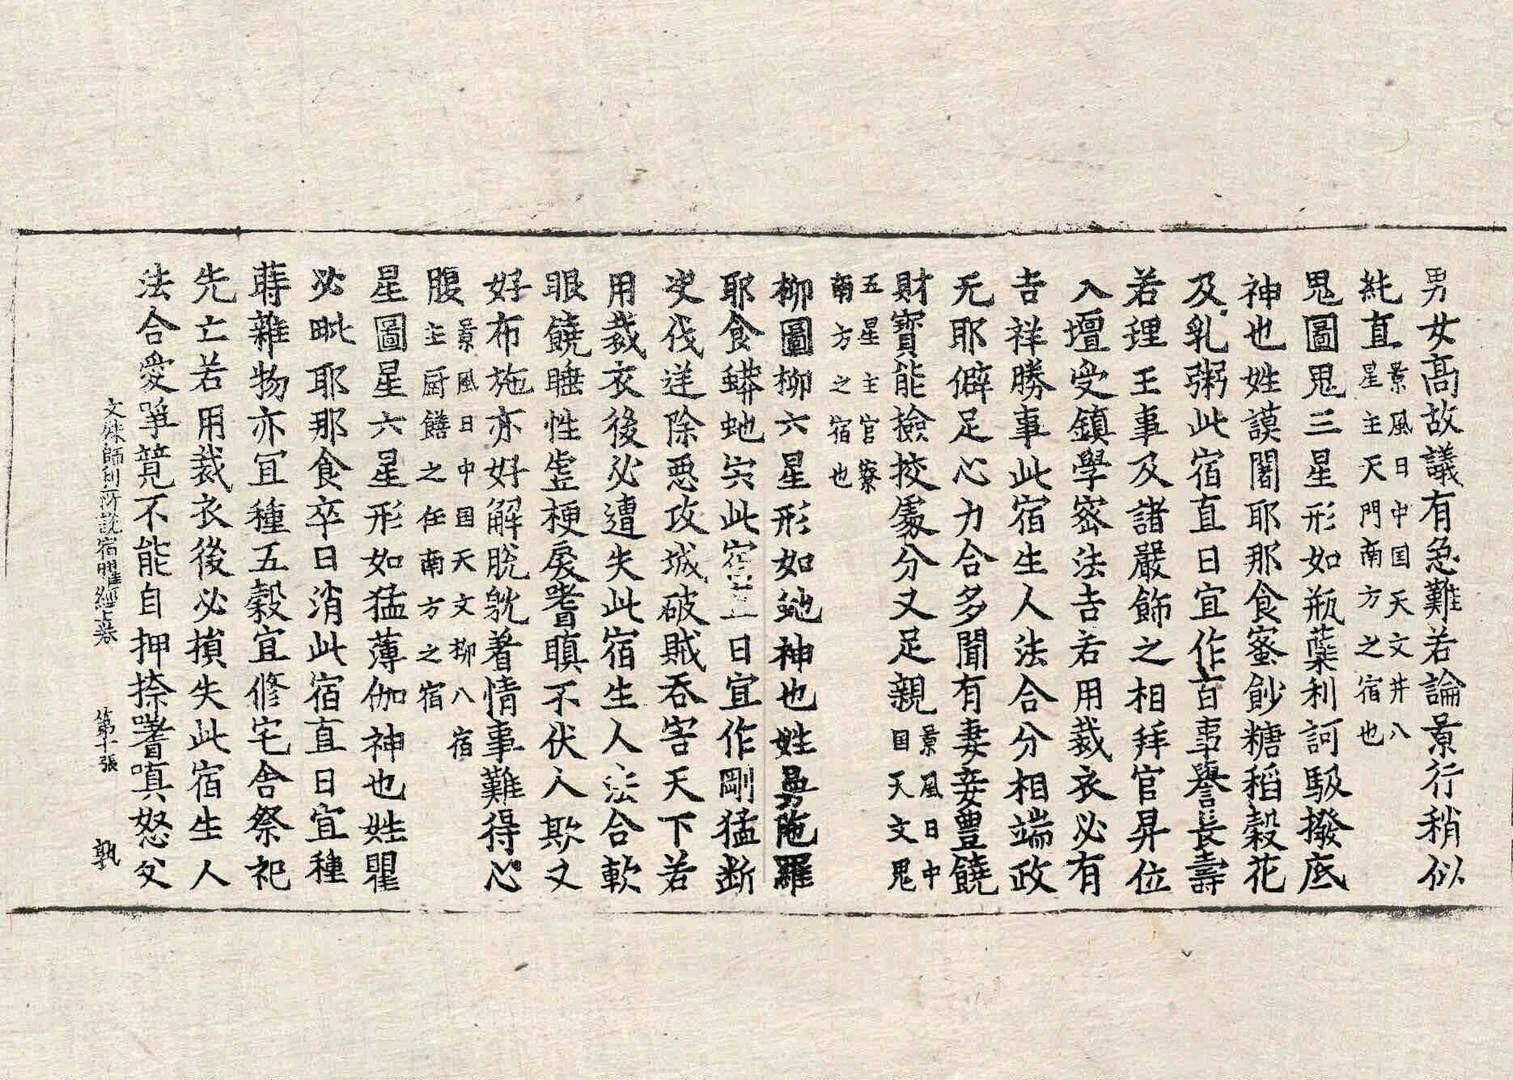 男女高故議有急難若論景行稍似
純直景風日中国天文井八
星主天門南方之宿也
鬼圖鬼三星形如瓶蘂利訶馺撥底
神也姓謨闍耶那食蜜麨糖稻穀花
及乳粥此宿直日宜作百事譽長壽
若理王事及諸嚴飾之相拜官昇位
入壇受鎮學密法吉若用裁衣必有
吉祥勝事此宿生人法合分相端政
无耶僻足心力合多聞有妻妾豊饒
財寶能撿挍處分又足親景風日中国天文鬼
五星主官寮
南方之宿也
柳圖柳六星形如虵神也姓曼陁羅
耶食蟒虵宍此宿直日宜作剛猛斷
决伐逆除惡攻城破賊吞害天下若
用裁衣後必遭失此宿生人法合軟
眼饒睡性靈梗戾嗜瞋不伏人欺又
好布施亦好解脫躭着情事難得心
腹景風日中国天文柳八宿
主厨饍之任南方之宿
星圖星六星形如猛薄伽神也姓瞿
必毗耶那食卒日消此宿直日宜種
蒔雜物亦冝種五穀宜修宅舍祭祀
先亡若用裁衣後必損失此宿生人
法合愛爭競不能自押捺嗜嗔怒父
文殊師利所說宿曜經上卷 第十張 孰